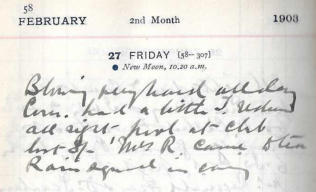 58
FEBRUARY 2nd Month 1903
27 FRIDAY [58—307]
● New Moon, 10.20 a.m.
Blowing very hard all day
Con. had a little I
all right pool at club
lost 5/- Mrs R came to tea
Rain squal in evng